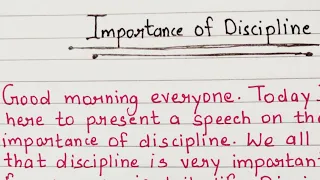 Importance of Discipline
Good morning everyone. Today I
here to present a speech on the
importance of discipline. We all
that discipline is very important